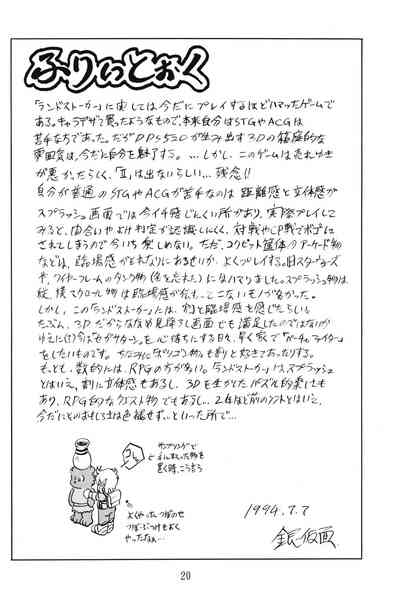 ふりぃとおく
「ランドストーカー」に関しては今だにプレイするほどハマったゲームで
ある。キャラデザで買ったようなもので、本来自分はSTGやACGは
苦手な方であった。だがDDS520が生み出す3Dの箱庭的な
雰囲気は、今だに自分を魅了する。…しかし、このゲームは売れゆき
が悪かったらしく、「Ⅱ」は出ないらしい…残念!!
自分が普通のSTGやACGが苦手なのは距離感と立体感が
スプラッシュ画面では今イチ感じにくい所があり、実際プレイして
みると、間合いやより判定が認識しにくく、対戦やCP戦でボコに
されてしまうので今いち楽しめない。ただ、コクピット筐体のアーケード物
などは、臨場感がとれなりにあるせいか、よくプレイする。旧スターウォーズ
や、ワイヤーフレームのタンク物(名を忘れた)にはハマりました。スプラッシュ物は
縦、横スクロール物は臨場感が伝わってこないモノが多かった。
しかし、この「ランドストーカー」には、割と臨場感を感じたらしい
たぶん、3Dだからななめ見降ろし画面でも満足したのではないか
ゆえに(?)今は「セガサターン」を心待ちにする日々。早く家で「バーチャファイター」
をしたいものです。ちなみに「ポリゴン物」も割と好きであったりする。
もっとも、数的には、RPGの方が多い。「ランドストーカー」はスプラッシュ
とはいえ、割に立体感もあるし、3Dを生かしたパズル的要素も
あり、RPG的なクエスト物でもあるし…2年ほど前のソフトとはいえ、
今だにそのおもしろさは色褪せず…といった所で…
サンプリングで
手にもった物を
置く時、こうゆう
よくやったつぼのせ
つぼぶつけをよく
やったなぁ…
1994.7.7
銀仮面
20